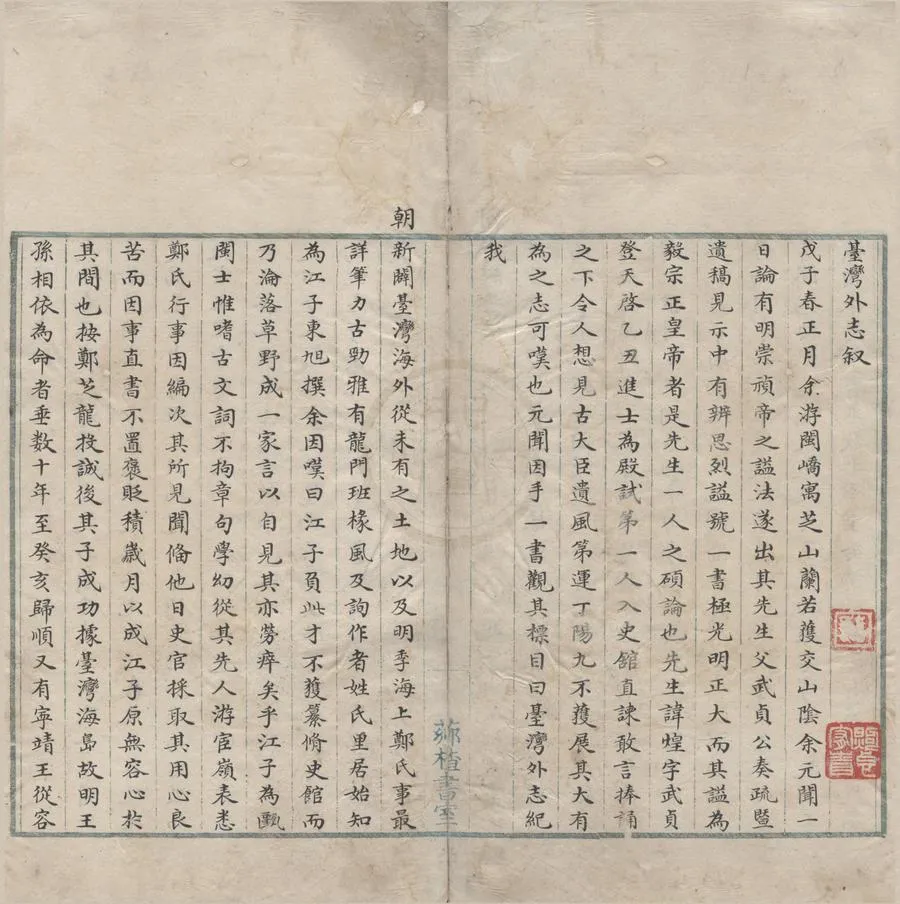 臺灣外志叙
戊子春正月余游閩嶠寓芝山蘭若獲交山陰余元聞一
日論有明崇禎帝之謚法遂出其先生父武貞公奏疏暨
遺稿見示中有辨思烈謚號一書極光明正大而其謚為
毅宗正皇帝者是先生一人之碩論也先生諱煌字武貞
登天啓乙丑進士為殿試第一人入史館直諫敢言捧誦
之下令人想見古大臣遺風第運丁陽九不獲展其大有
為之志可嘆也元聞因手一書觀其標目曰臺灣外志紀
我
朝新闢臺灣海外從未有之土地以及明季海上鄭氏事最
詳筆力古勁雅有龍門班椽風及詢作者姓氏里居始知
為江子東旭撰余因嘆曰江子負此才不獲纂脩史館而
乃淪落草野成一家言以自見其亦勞瘁矣乎江子為甌
閩士惟嗜古文詞不拘章句學幼從其先人游宦嶺表悉
鄭氏行事因編次其所見聞備他日史官採取其用心良
苦而因事直書不置褒貶積歲月以成江子原無容心於
其間也按鄭芝龍投誠後其子成功據臺灣海島故明王
孫相依為命者垂数十年至癸亥歸順又有寧靖王從容
書室